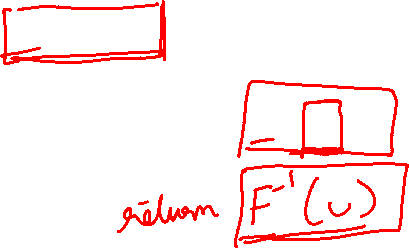 return F⁻¹(u)